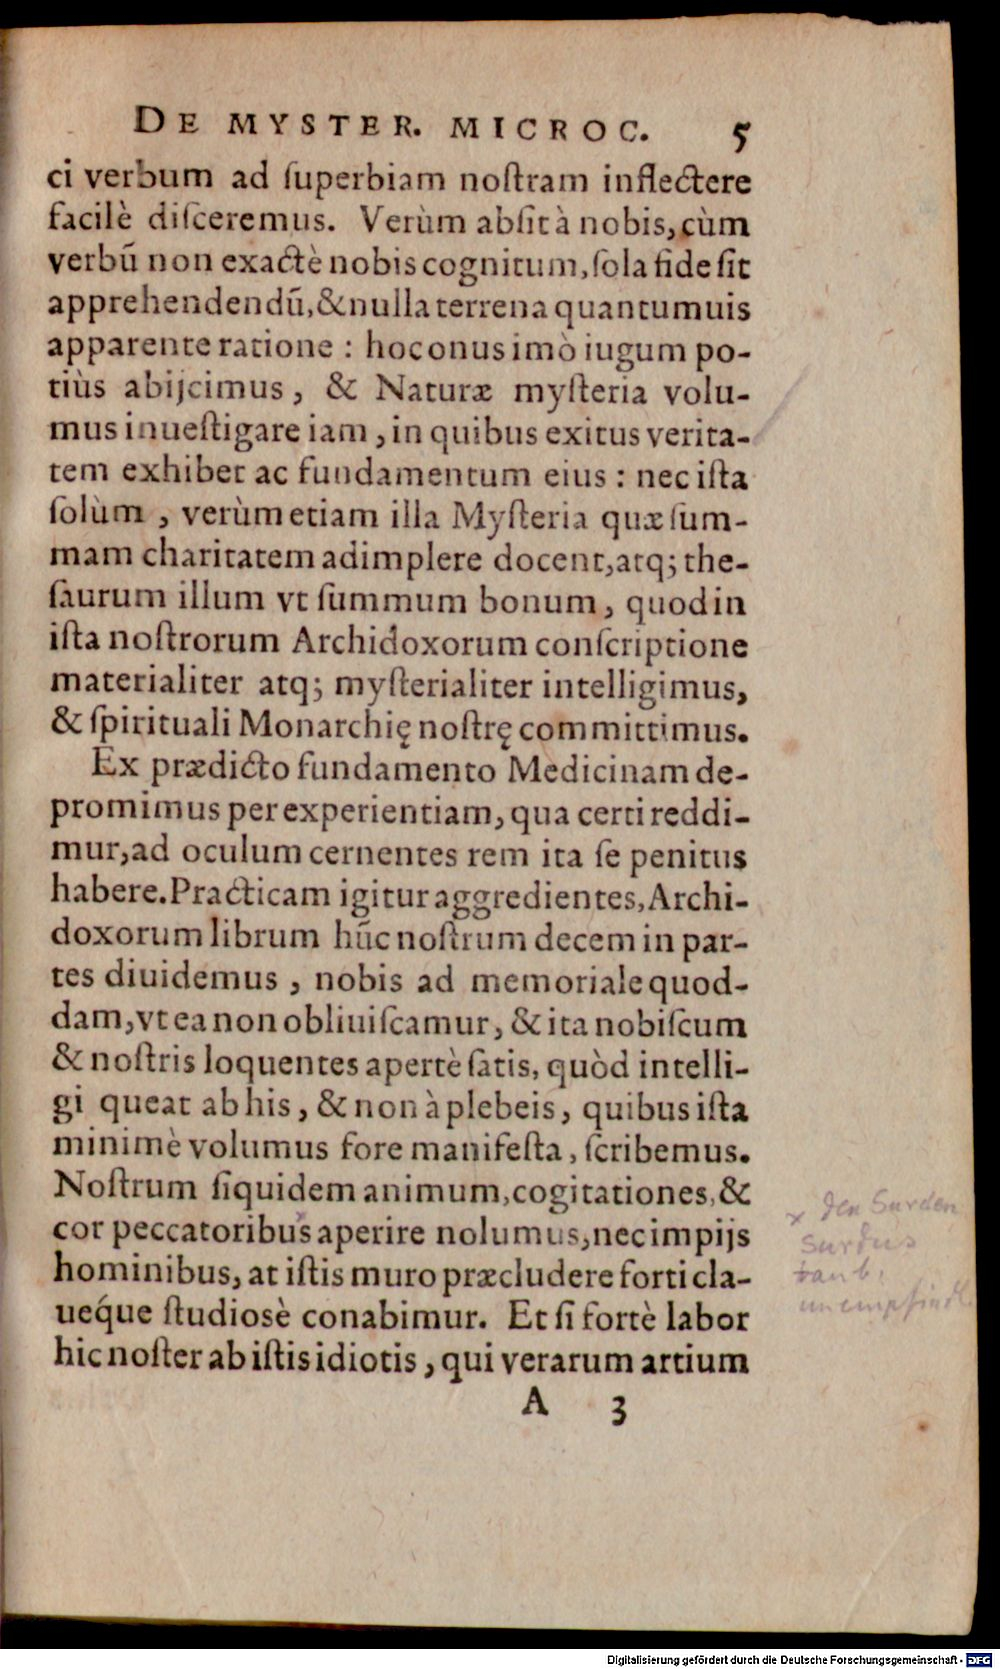 DE MYSTER. MICROC. 5
ci verbum ad ſuperbiam noſtram inflectere
facilè diſceremus. Verùm abſit à nobis, cùm
verbũ non exactè nobis cognitum, ſola fide ſit
apprehendendũ, & nulla terrena quantumuis
apparente ratione : hoc onus imò iugum po-
tiùs abijcimus, & Naturæ myſteria volu-
mus inueſtigare iam, in quibus exitus verita-
tem exhibet ac fundamentum eius : nec iſta
ſolùm, verùm etiam illa Myſteria quæ ſum-
mam charitatem adimplere docent, atq; the-
ſaurum illum vt ſummum bonum, quod in
iſta noſtrorum Archidoxorum conſcriptione
materialiter atq; myſterialiter intelligimus,
& ſpirituali Monarchię noſtrę committimus.
Ex prædicto fundamento Medicinam de-
promimus per experientiam, qua certi reddi-
mur, ad oculum cernentes rem ita ſe penitus
habere. Practicam igitur aggredientes, Archi-
doxorum librum hũc noſtrum decem in par-
tes diuidemus, nobis ad memoriale quod-
dam, vt ea non obliuiſcamur, & ita nobiſcum
& noſtris loquentes apertè ſatis, quòd intelli-
gi queat ab his, & non à plebeis, quibus iſta
minimè volumus fore manifeſta, ſcribemus.
Noſtrum ſiquidem animum, cogitationes, &
cor peccatoribus aperire nolumus, nec impijs
hominibus, at iſtis muro præcludere forti cla-
uéque ſtudioſè conabimur. Et ſi fortè labor
hic noſter ab iſtis idiotis, qui verarum artium
A 3
x den Surden
Surdus
taub,
unempfindl
Digitalisierung gefördert durch die Deutsche Forschungsgemeinschaft - DFG